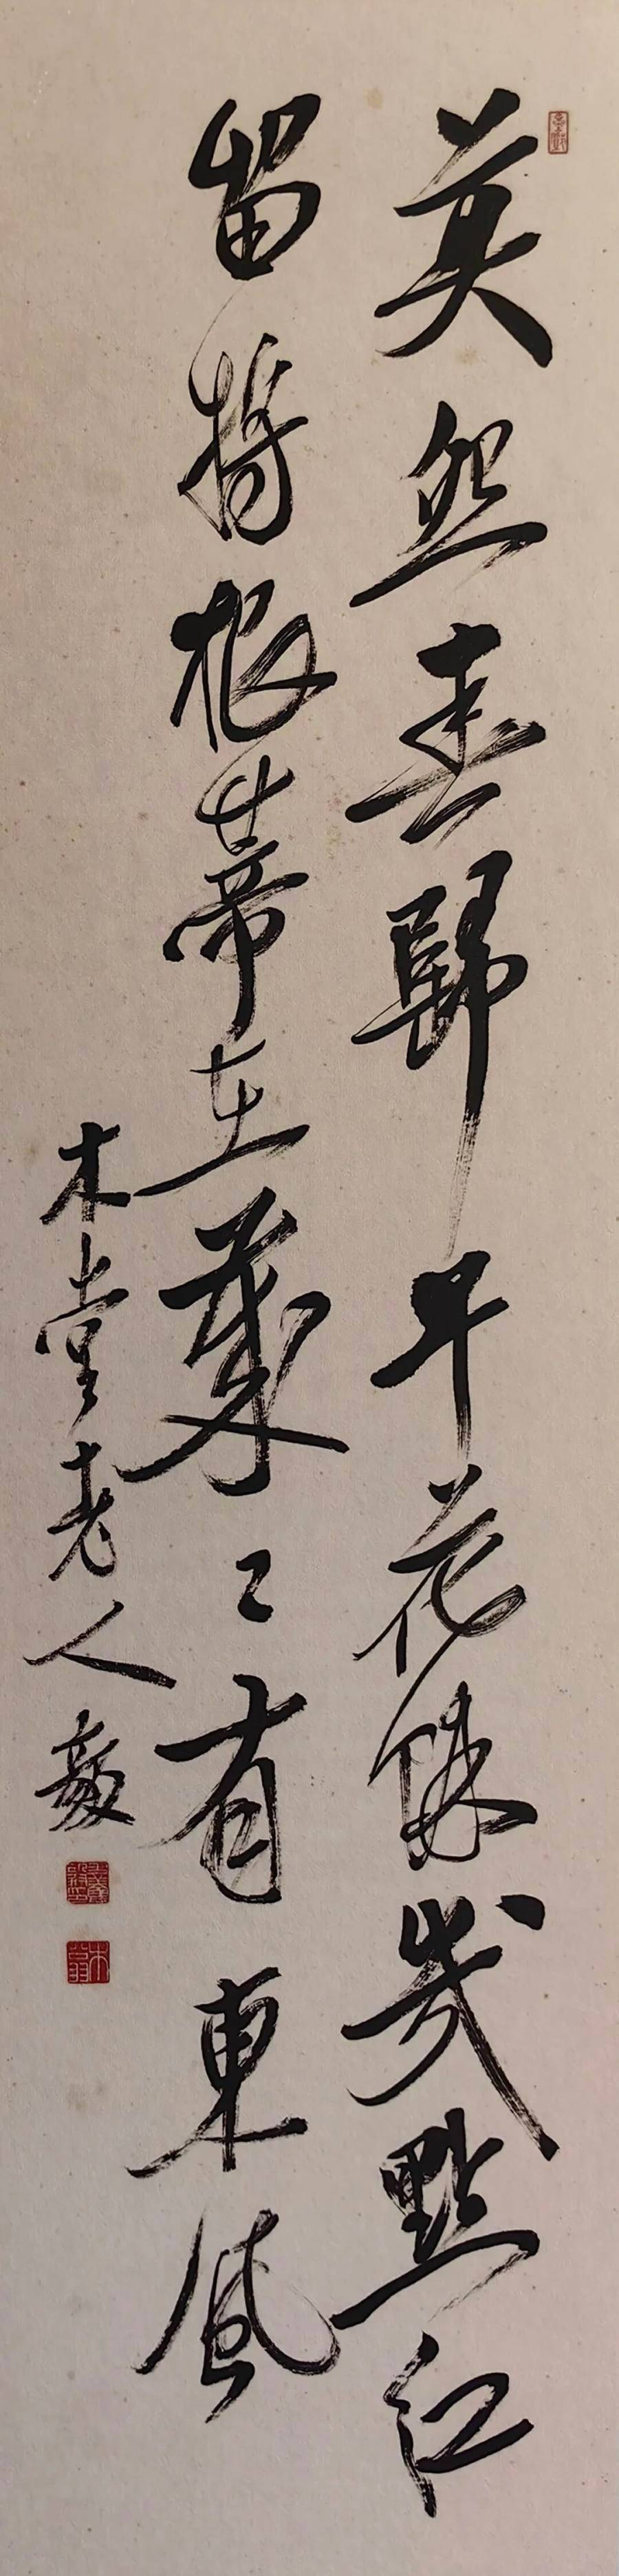 莫怨春歸早花餘幾點紅
留将根蒂在歳〻有東風
木堂老人毅